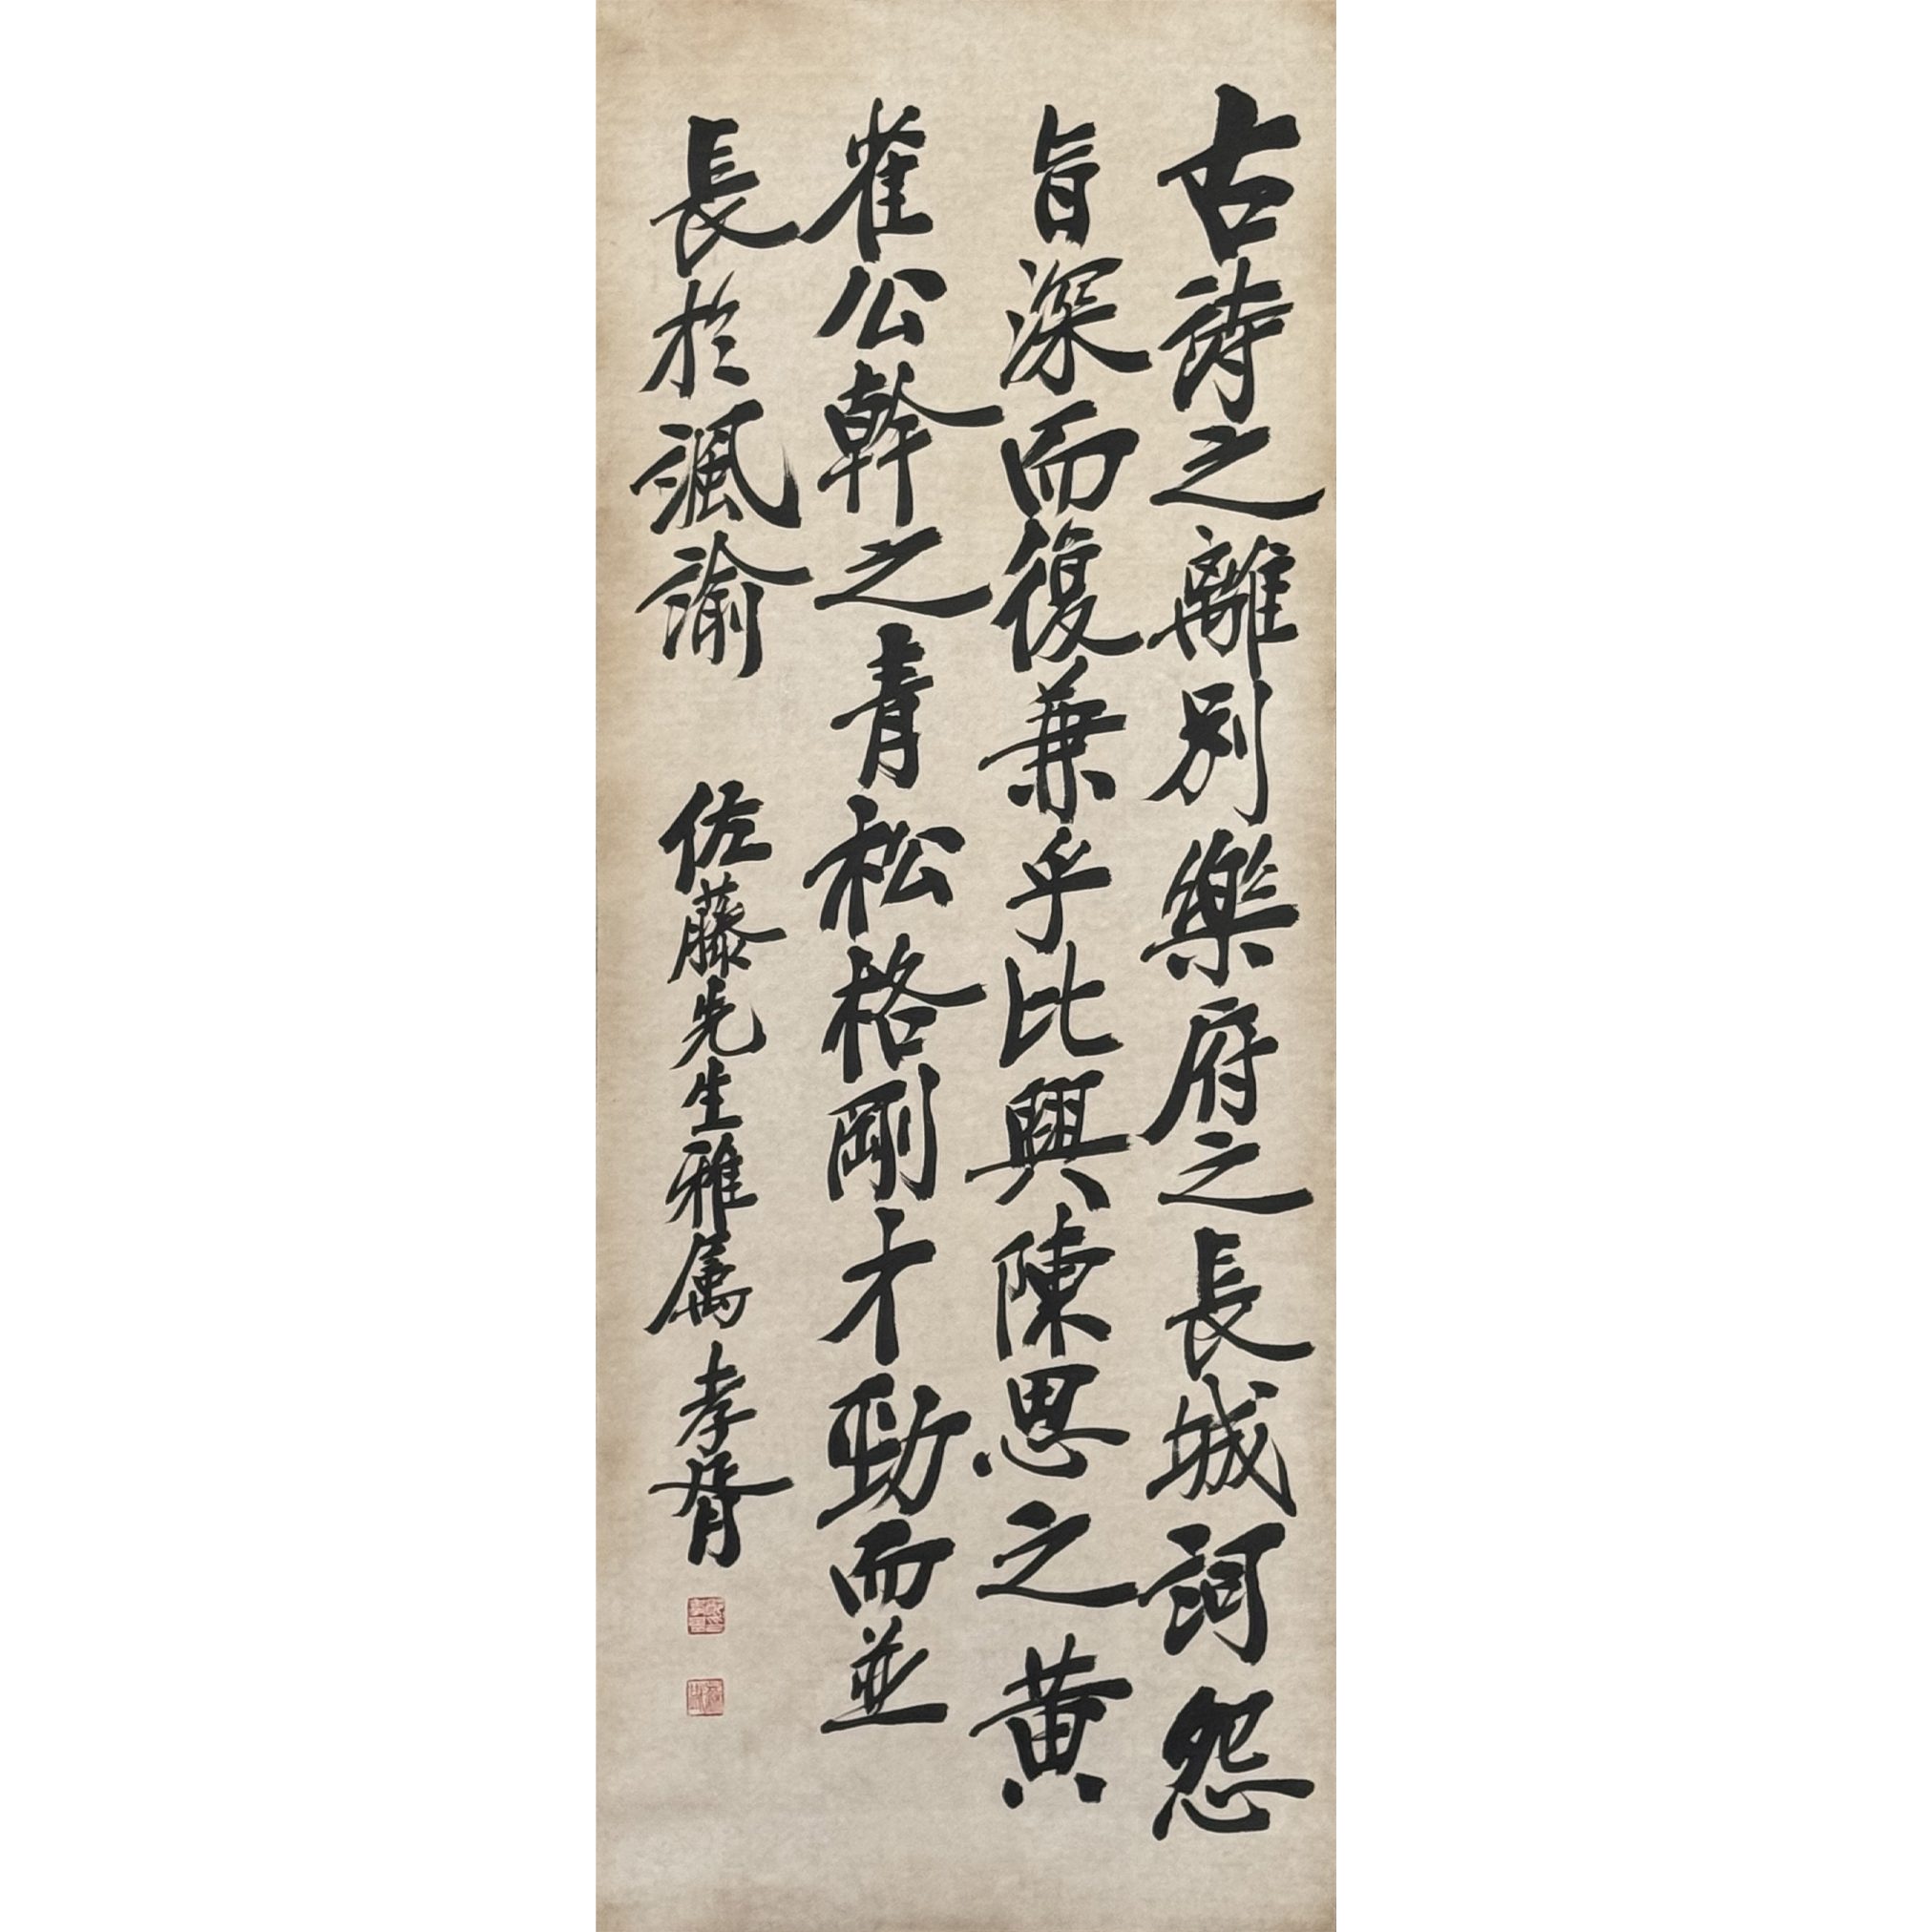 古詩之離別樂府之長城詞怨
旨深而復兼乎比興陳思之黄
雀公幹之青松格剛才勁而並
長於諷諭
佐藤先生雅属孝胥